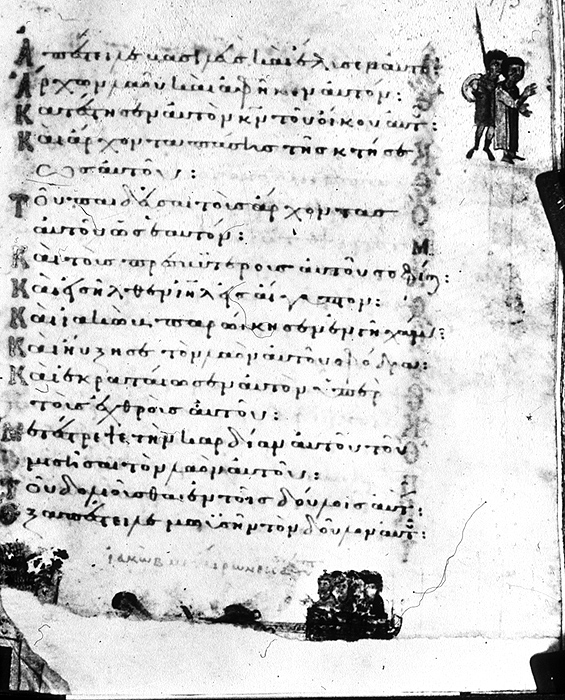 Ἀπέστειλε βασιλεὺς καὶ ἔλυσεν αὐτὸν:
Ἄρχων λαοῦ καὶ ἀφῆκεν αὐτὸν:
Κατέστησεν αὐτὸν κν τοῦ οἴκου αὐτ:
Καὶ ἄρχοντα πάσης τῆς κτήσε
ως αὐτοῦ:
Τοῦ παιδεῦσαι τοὺς ἄρχοντας
αὐτοῦ ὡς ἑαυτὸν:
Καὶ τοὺς πρεσβυτέρους αὐτοῦ σοφίσ:
Καὶ εἰσῆλθεν ιηλ εἰς αἴγυπτον:
Καὶ ιακὼβ παρώκησεν ἐν γῆ χαμ:
Καὶ ηὔξησε τὸν λαὸν αὐτοῦ σφόδρα:
Καὶ ἐκραταίωσεν αὐτὸν ὑπὲρ
τοὺς ἐχθροὺς αὐτοῦ:
Μετέστρεψε τὴν καρδίαν αὐτοῦ τοῦ
μισῆσαι τὸν λαὸν αὐτοῦ:
Τοῦ δολιοῦσθαι ἐν τοῖς δούλοις αὐτ:
Ἐξαπέστειλε μωϋσῆν τὸν δοῦλον αὐτ:
ιακωβ